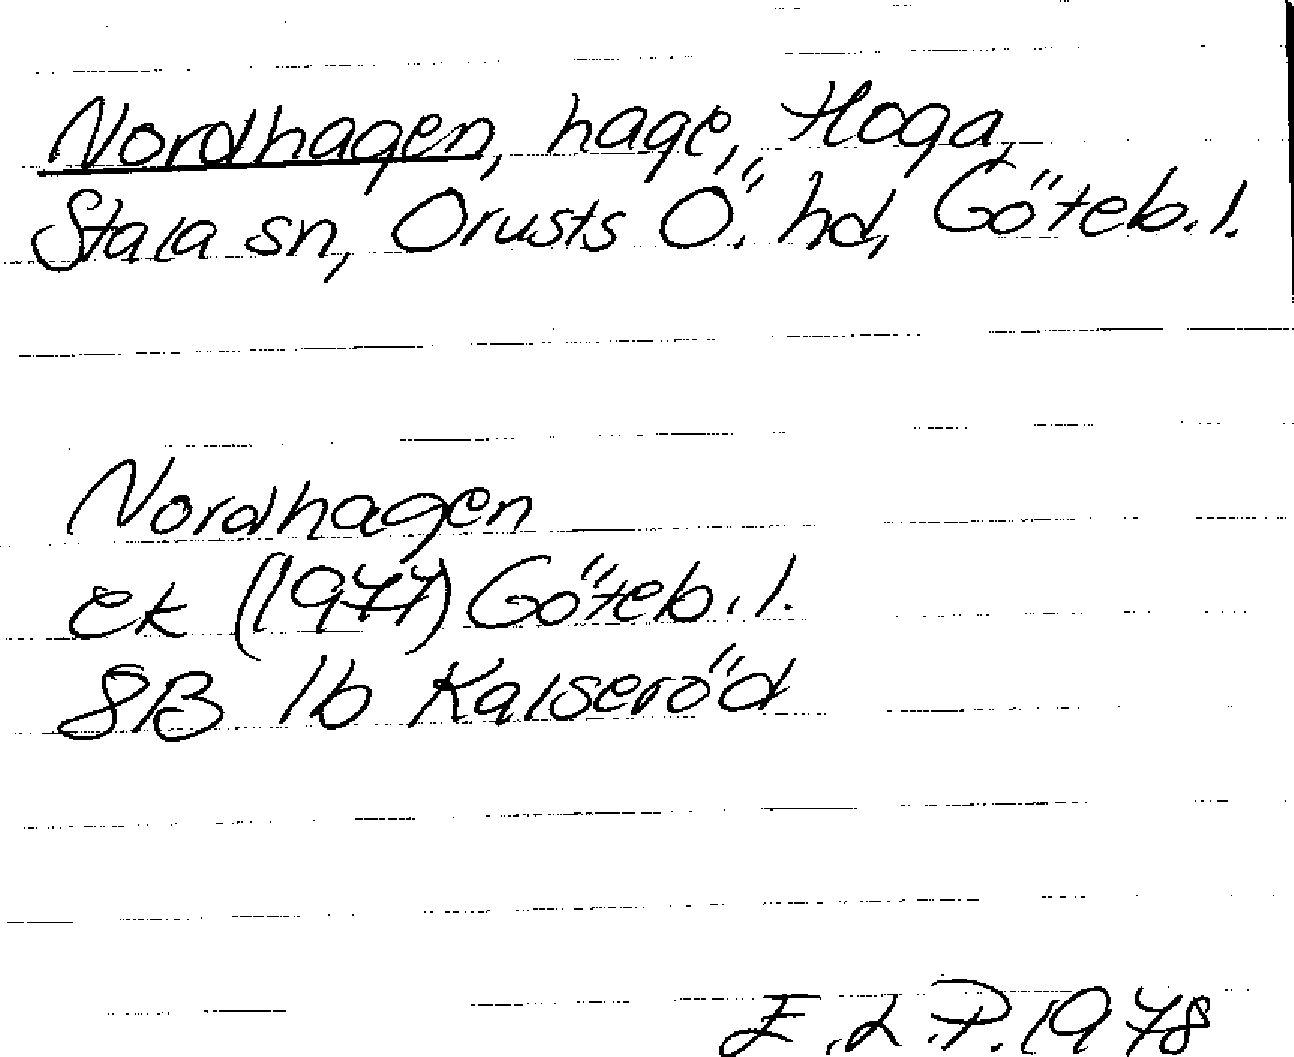 Nordhagen, hage, Hoga,
Stala sn, Orusts Ö. hd, Göteb. l.
Nordhagen
ek (1977) Göteb. l.
8B 1b Kalseröd
E.L.P. 1978